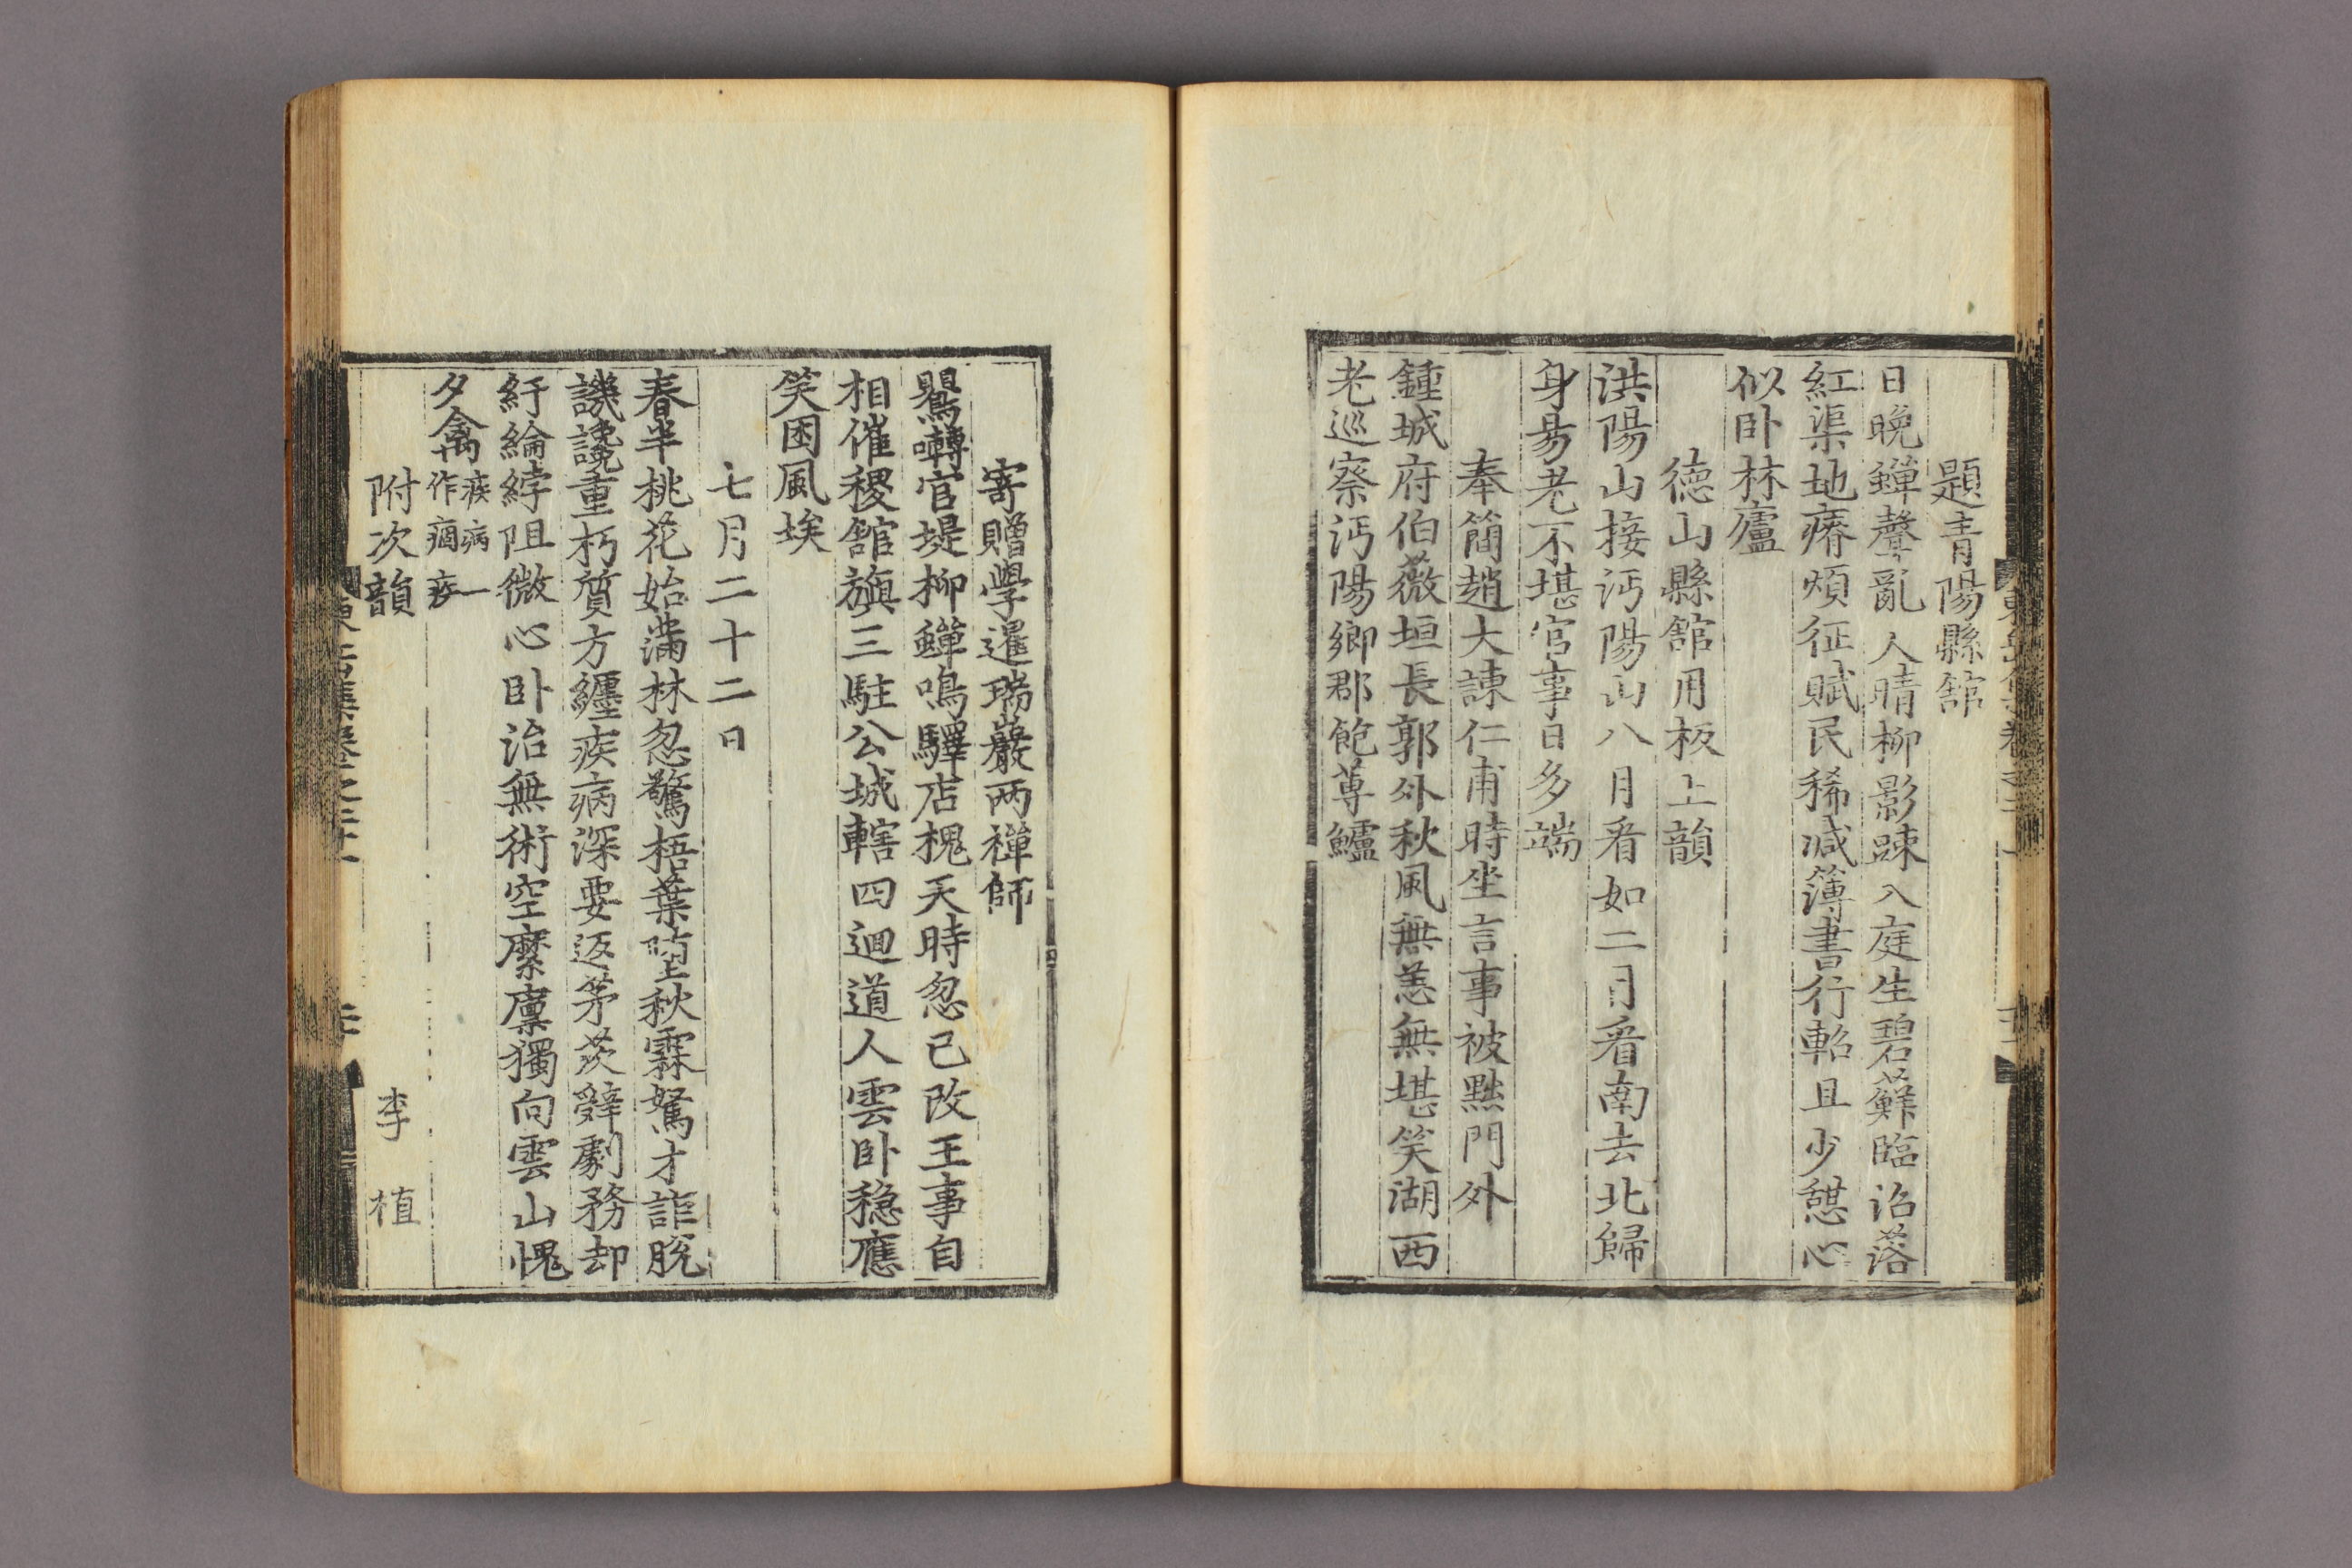 題青陽縣舘
日晚蟬聲亂人晴柳影踈入庭生碧蘚臨沼落
紅渠地瘠煩征賦民稀减簿書行軺且少憇心
似卧林廬
德山縣舘用板上韻
洪陽山接沔陽山八月看如二月看南去北歸
身昜老不堪官事日多端
奉簡趙大諫仁甫時坐言事被黜門外
鍾城府伯薇垣長郭外秋風無恙無堪笑湖西
老巡察沔陽鄉郡飽蓴鱸
寄贈學暹瑞巖两禅師
鸎囀官堤柳蟬鳴驛店槐天時忽已改王事自
相催稷舘旟三駐公城轄四迴道人雲卧穩應
笑困風埃
七月二十二日
春半桃花始滿林忽驚梧葉墮秋霖駑才詎脫
譏讒重朽質方纏疾病深要返茅茨辭劇務却
紆綸綍阻微心卧治無術空縻廪獨向雲山愧
夕禽疾病一作痼疹
附次韻 李植
東岳集卷之二十